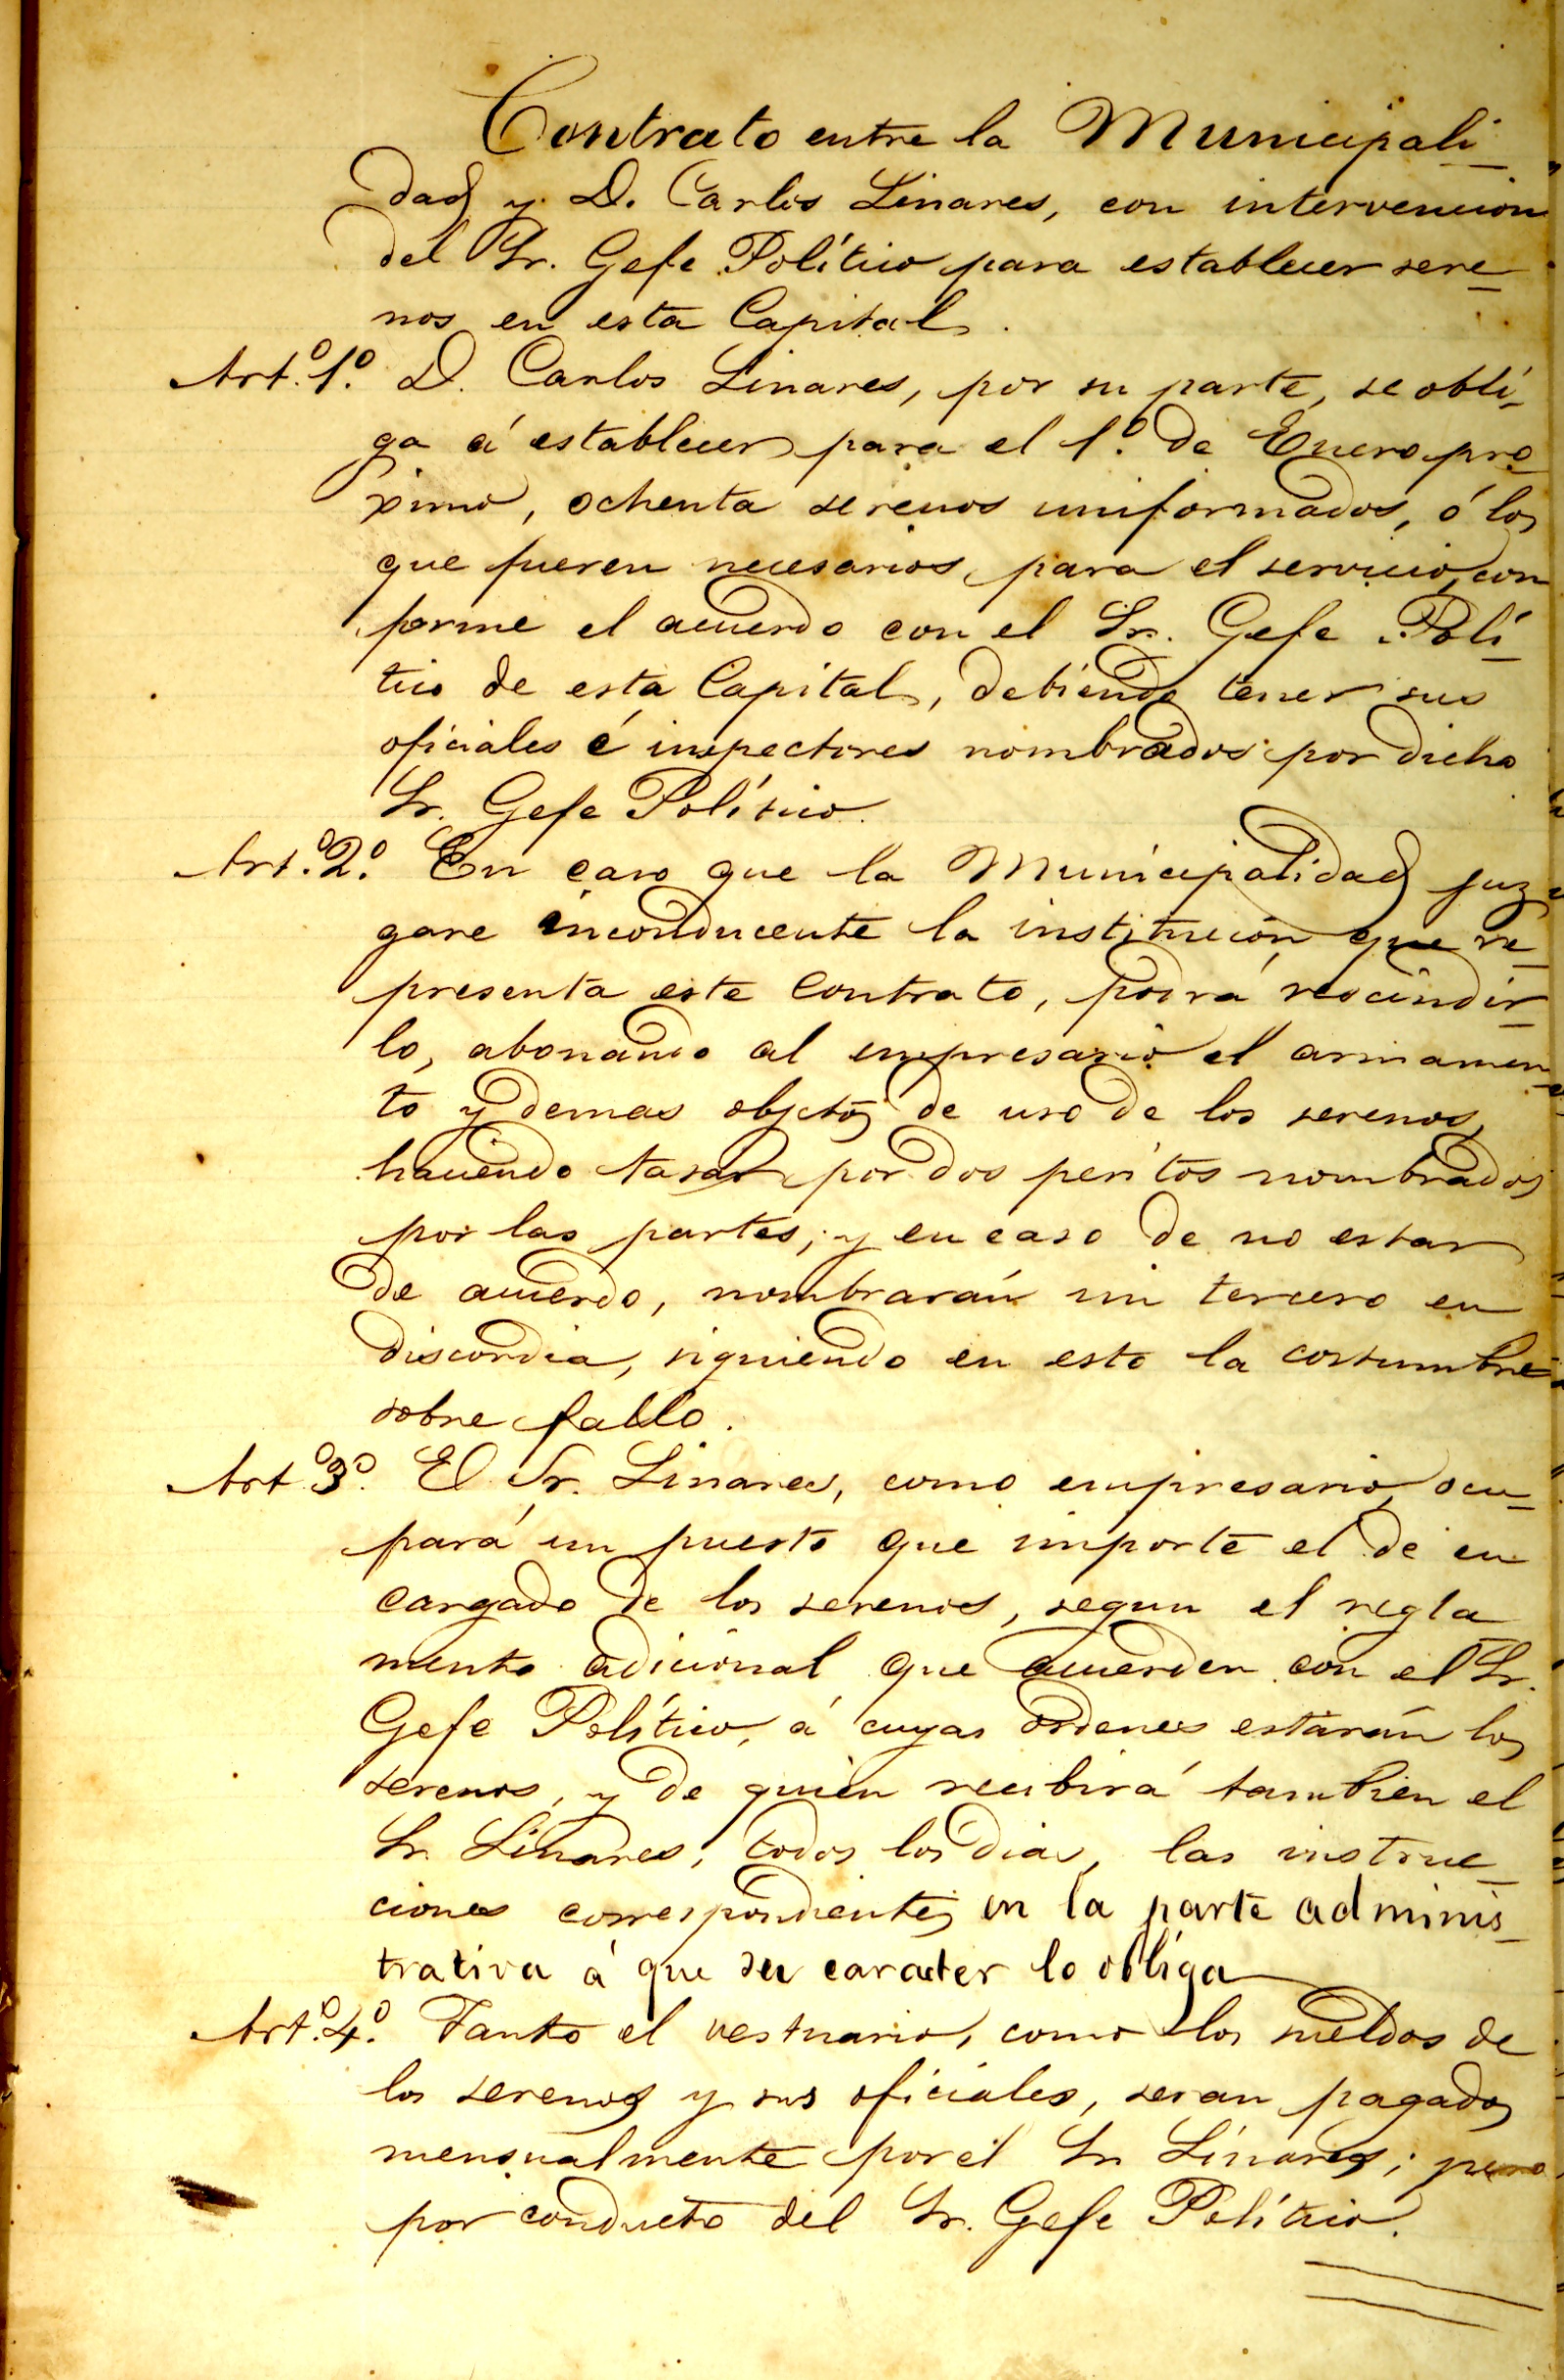 Contrato entre la Municipali-
dad y D. Carlos Linares, con intervencion
del Sr. Gefe Político para establecer sere-
nos en esta Capital.
Art.º 1º. D. Carlos Linares, por su parte, se obli-
ga á establecer para el 1º. de Enero pro-
ximo, ochenta serenos uniformados, ó los
que fueren necesarios, para el servicio, con
forme el acuerdo con el Sr. Gefe Polí-
tico de esta Capital, debiendo tener sus
oficiales é inspectores nombrados por dicho
Sr. Gefe Político.
Art.º 2º. En caso que la Municipalidad juz-
gare inconducente la institucion que re-
presenta este Contrato, podrá rescindir-
lo, abonando al empresario el armamen-
to y demas objetos de uso de los serenos,
haciendo tasar por dos peritos nombrados
por las partes; y en caso de no estar
de acuerdo, nombrarán un tercero en
discordia, siguiendo en esto la costumbre
sobre fallo.
Art.º 3º. El Sr. Linares, como empresario, ocu-
pará un puesto que importe el de en
cargado de los serenos, segun el regla-
mento adicional que acuerden con el Sr.
Gefe Político, á cuyas órdenes estarán los
serenos, y de quien recibirá tambien el
Sr. Linares, todos los dias, las instruc-
ciones correspondientes en la parte adminis-
trativa á que su caracter lo obliga
Art.º 4º. Tanto el vestuario, como los sueldos de
los serenos y sus oficiales, seran pagados
mensualmente por el Sr. Linares; pero
por conducto del Sr. Gefe Político.